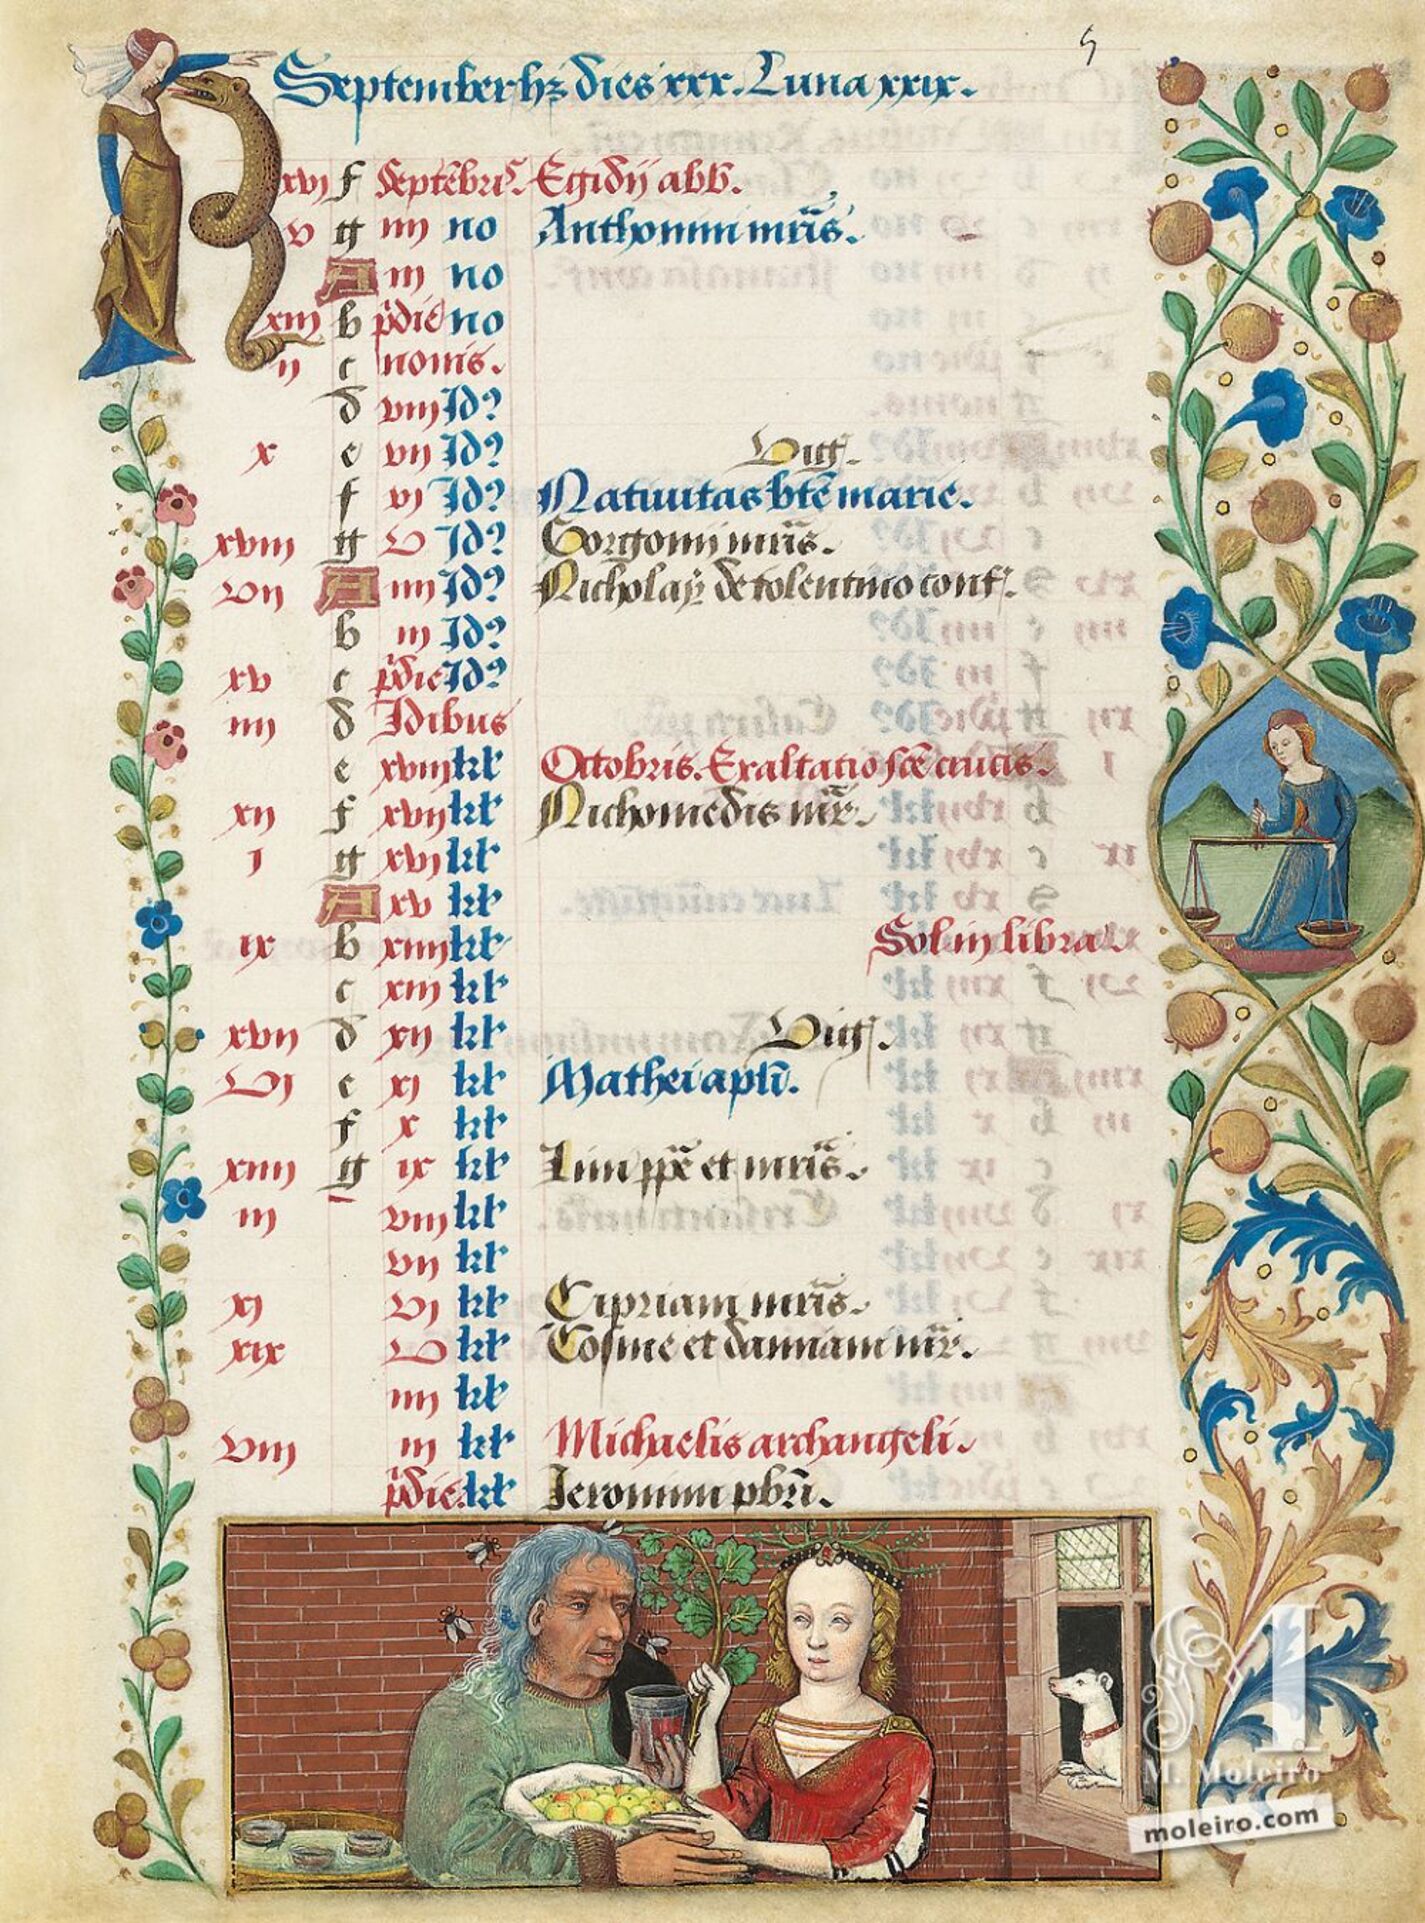 5
September hꝫ dies xxx. Luna xxix.
xvj f Septēbris. Egidij abb̄.
v g iiij no Anthonini mr̄is.
A iij no
xiij b p̄die no
ij c nonis.
d viij Idꝰ
x e vij Idꝰ Vigꝭ.
f vj Idꝰ Natiuitas btē marie.
xviij g v Idꝰ Gorgonij mr̄is.
vij A iiij Idꝰ Nicholaꝰ de tolentino conf.
b iij Idꝰ
xv c p̄die Idꝰ
iiij d Idibus
e xviij kł Octobris. Exaltatio scē crucis.
xij f xvij kł Nichomedis mr̄.
j g xvj kł
A xv kł
ix b xiiij kł Sol in libra.
c xiij kł
xvij d xij kł Vigꝭ.
vj e xj kł Mathei apłi.
f x kł
xiiij g ix kł Lini pp̄e et mr̄is.
iij viij kł
vij kł
xj vj kł Cipriani mr̄is.
xix v kł Cosme et damiani mr̄.
iiij kł
viij iij kł Michaelis archangeli.
p̄die. kł Jeronimi pbr̄i.
M
M. Moleiro
moleiro.com